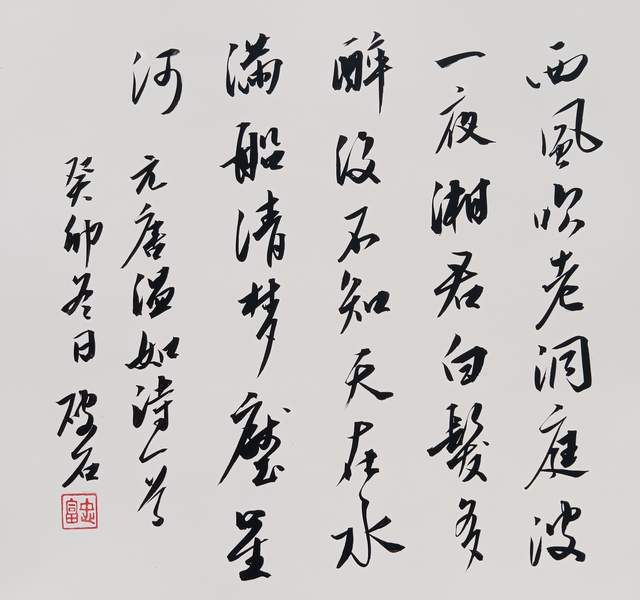 西風吹老洞庭波
一夜湘君白髮多
醉後不知天在水
滿船清梦壓星
河 元唐温如詩一首
癸卯冬日 破石
忠富